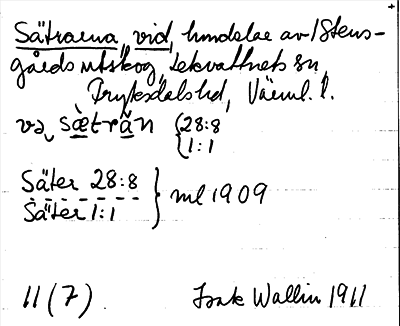 "Sätrarna" vid, hundelar av Stens-
gårds utskog, Lekvattnets sn,
Fryksdals hd, Värml. l.
va, sæträn { 28:8
1:1
Säter 28:8
Säter 1:1 } ml 1909
11 (7) Isak Wallin 1911